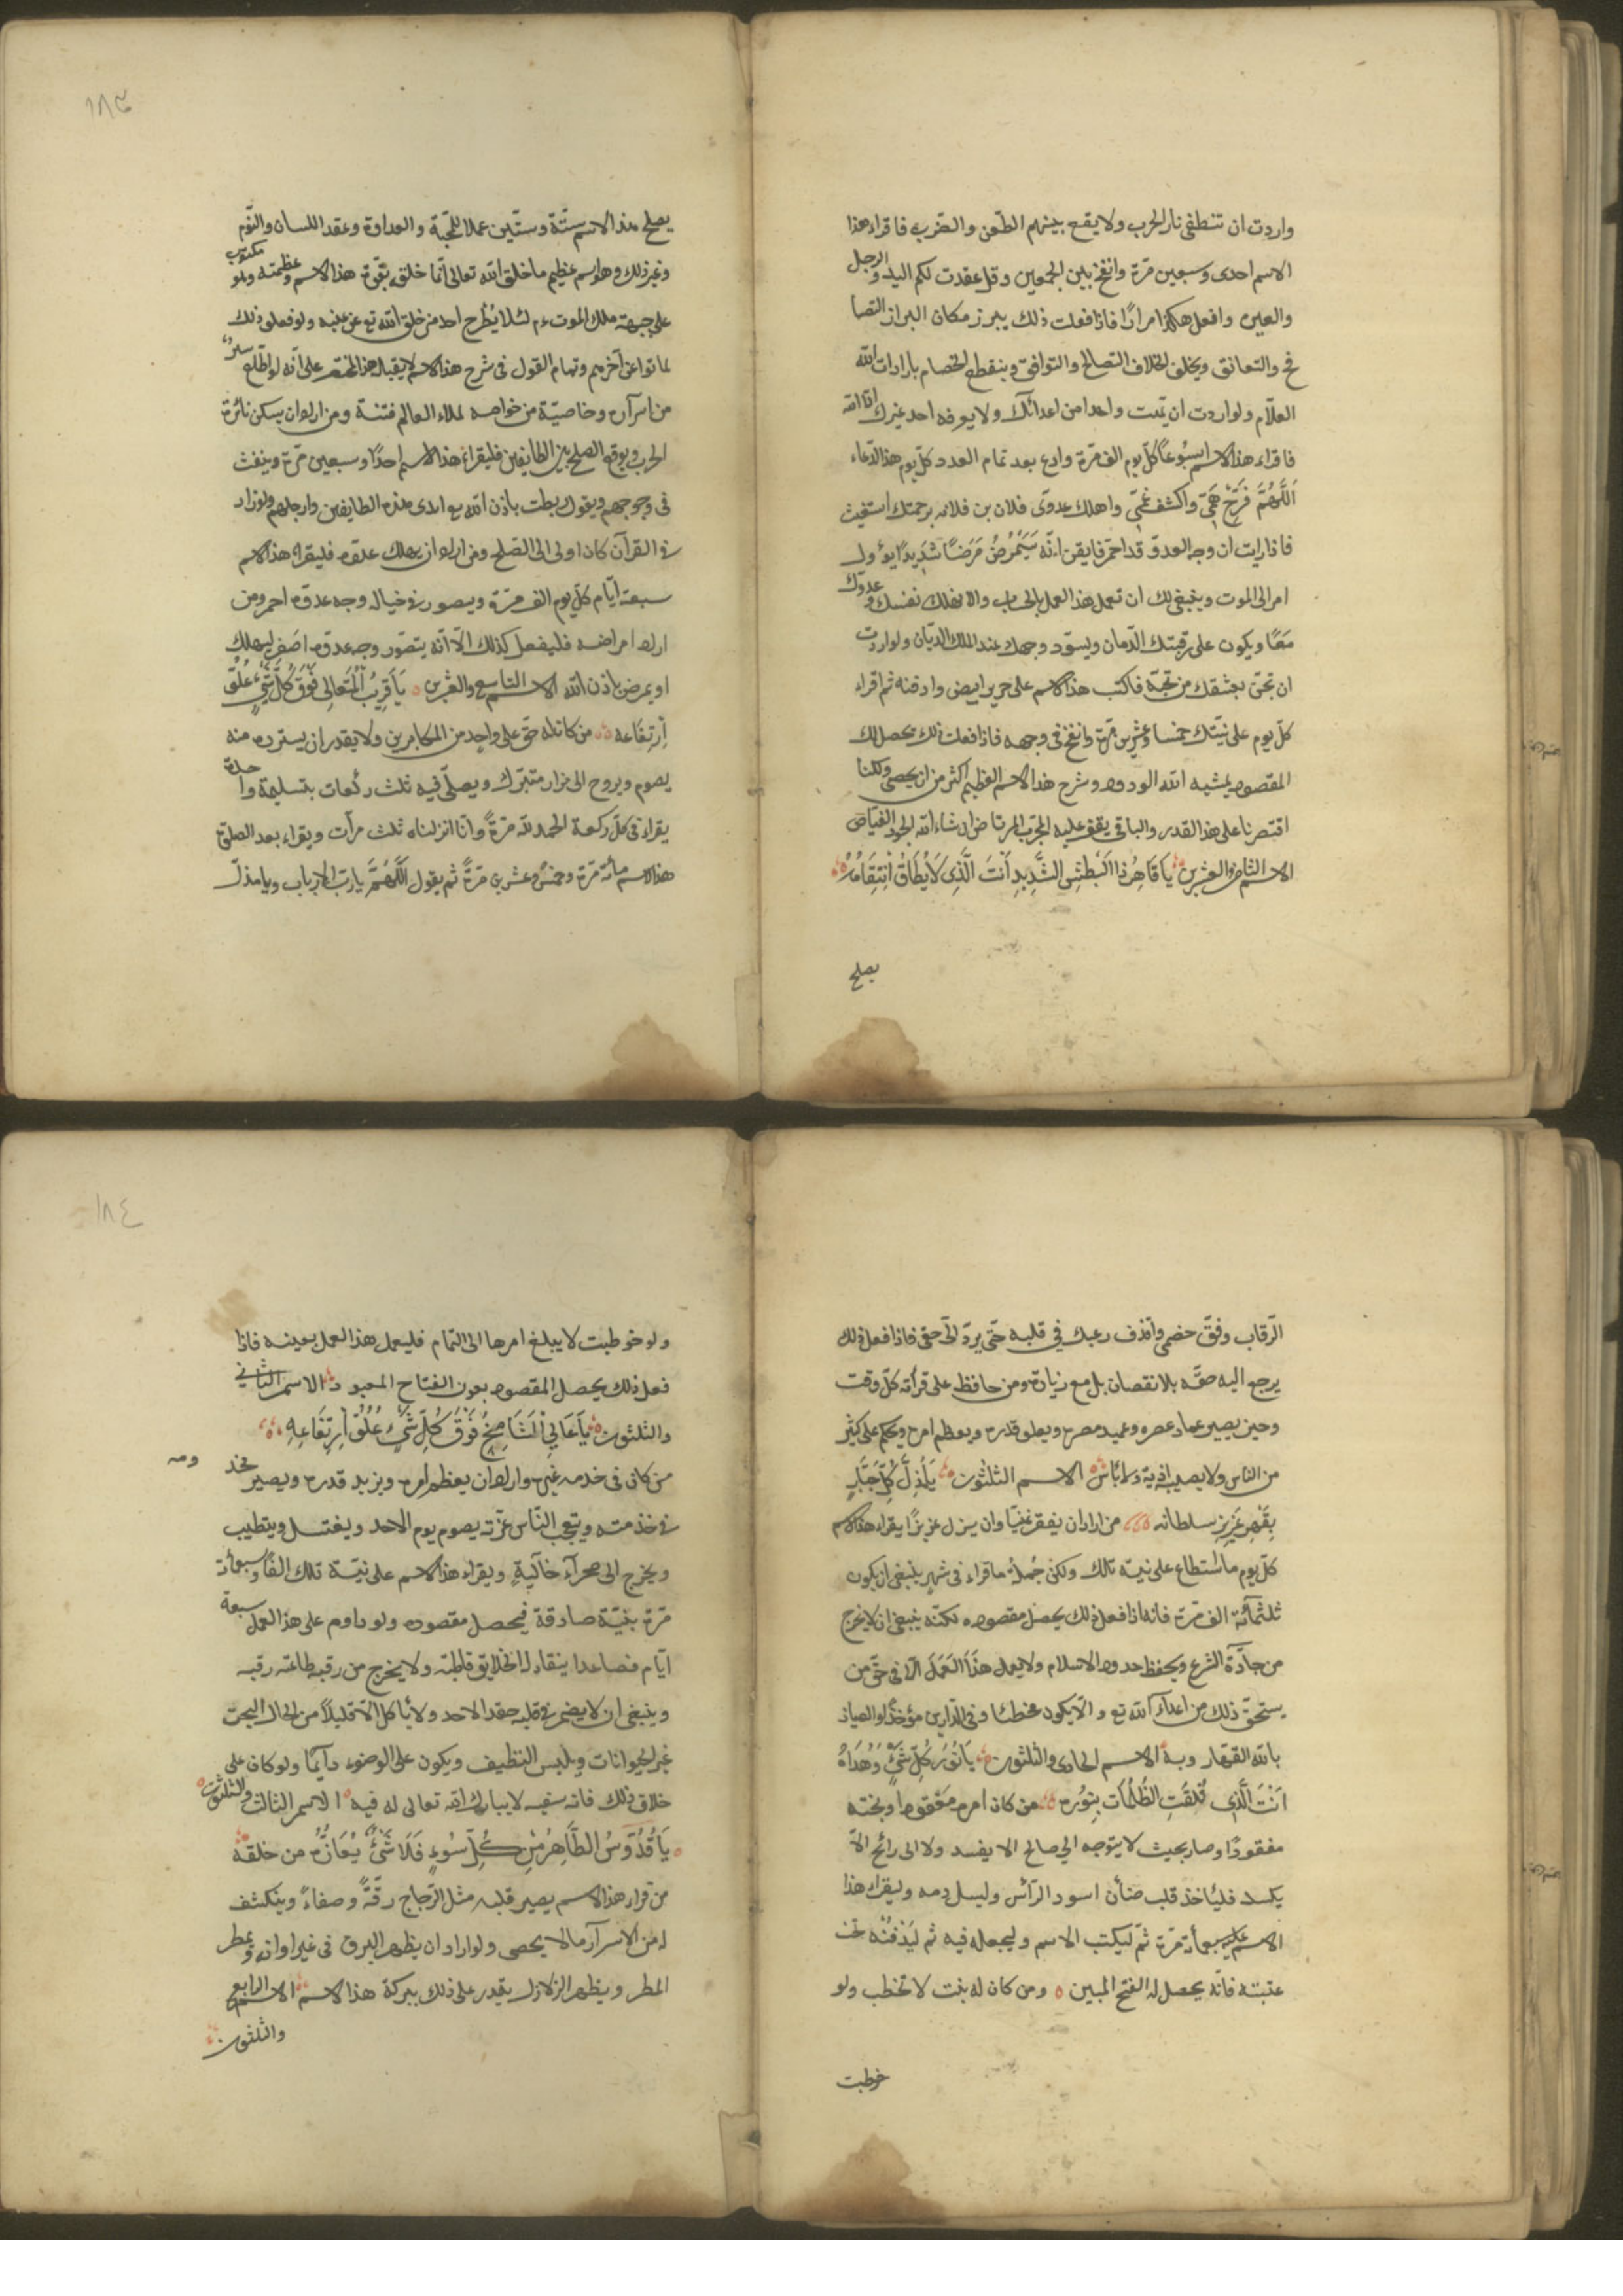 واردت ان تنطفى نار الحرب ولا يقع بينهم الطّعن والضّرب فاقراء هذا
الاسم احدى وسبعين مرّة وانفخ بين الجمعين وقل عقدت لكم اليد والرجل
والعين وافعل هكذا مرارًا فاذا فعلت ذلك يبرز مكان البراز التصا
فح والتعانق ويخلف الخلاف التصالح والتوافق وينقطع الخصام بارادات الله
العلّام ولو اردت ان تميت واحدا من اعدائك ولا يعرفه احد غيرك
فاقراء هذا الاسم اسبُوعًا كلّ يوم الف مرّة وادع بعد تمام العدد كلّ يوم هذا الدّعاء
اَللَّهُمَّ فَرِّجْ هَمِّى واكشف غمّى واهلك عدوّى فلان بن فلانه برحمتك استغيث
فاذا رايت ان وجه العدوّ قد احمر فايقن انّه سَيَمْرُضُ مَرَضًا شَدِيدًا يؤل
امر الى الموت وينبغى لك ان تعمل هذا العمل بالحساب والا تهلك نفسك وعدوّك
مَعًا ويكون على رقبتك الدّمان ويسوّد وجهك عند الملك الديّان ولو اردت
ان تجنّ بعشقك من تحبّه فاكتب هذا الاسم على حرير ابيض وادفنه ثم اقراء
كلّ يوم على نيّتك خمسا وعشرين مرّة وانفخ فى وجهه فاذا فعلت ذلك يحصل لك
المقصود بمشية الله الودود وشرح هذا الاسم العظيم اكثر من ان يحصى ولكنا
اقتصرنا على هذا القدر والباقى يقف عليه المجرّب المرتاض ان شاء الله الجواد الفيّاض
الاسم الثامن والعشرين يا قَاهِرُ ذَا الْبَطْشِ الشَّدِيدِ اَنْتَ الَّذِى لَا يُطَاقُ اِنْتِقَامُهُ
يصلح
١٨٣
يصلح هذا الاسم ستّة وستّين عملا للمحبّة والعداوة وعقد اللسان والنّوم
وغير ذلك وهو اسم عظيم ما خلق الله تعالى انّما خلق بقوّة هذا الاسم وعظمته ولو مكتوب
على جبهة ملك الموت ءم لئلا يطرح احد من خلق الله تع عن عينه ولو فعل ذلك
لماتوا عن آخرهم وتمام القول فى شرح هذا الاسم لا يقبله هذا المختصر على انّه لو اطّلع
من اسراره وخاصيّة من خواصه لملاء العالم فتنة ومن اراد ان يسكن نائرة
الحرب ويوقع الصلح بين الطايفين فليقراء هذا الاسم احدًا وسبعين مرّة وينفث
فى وجوههم ويقول ربطت باذن الله تع ايدى هذه الطايفين وارجلهم ولو زاد
فى القرآن كان اولى الى الصّلح ومن اراد ان يهلك عدوّه فليقراء هذا الاسم
سبعة ايّام كلّ يوم الف مرّة ويصور فى خياله وجه عدوّه احمر ومن
اراد امراضه فليفعل كذلك الّا انّه يتصّور وجه عدوّه اصفر ليهلك
او يمرض باذن الله الاسم التاسع والعشرين يَا قَرِيبُ الْمُتَعَالِى فَوْقَ كُلِّ شَىْءٍ عُلُوُّ
اِرْتِفَاعِه من كان له حقّ على واحد من المكابرين ولا يقدر ان يسترده منه
يصوم ويروح الى مزار متبرّك ويصلّى فيه ثلث ركعات بتسليمة واحدة
يقراء فى كلّ ركعة الحمد لله مرّةً وانّا انزلناه ثلث مرّات ويقراء بعد الصلوة
هذا الاسم مائة مرّة وخمسً وعشرين مرّةً ثم يقول اَللَّهُمَّ يا ربّ الارباب ويا مذلّ
الرّقاب وفقّ خصمى واقذف رعبك فى قلبه حتّى يردّ الىّ حقى فاذا فعل ذلك
يرجع اليه حقّه بلا نقصان بل مع زيادة ومن حافظ على قرأته كلّ وقت
وحين يصير عماد عصره وعميد مصره ويعلو قدره ويعظم امره ويحكم على كثير
من الناس ولا يصيبه اذية ولا باس الاسم الثلثون يَا مُذِلَّ كُلِّ جَبَّارٍ
بِقَهْرِ عَزِيزِ سلطانه من اراد ان يفقر غنيًّا وان يزل عزيزًا يقراء هذا الاسم
كلّ يوم ما استطاع على نيّة تلك ولكن جُملةُ ما قراء فى شهر ينبغى ان يكون
ثلثمائة الف مرّة فانه اذا فعل ذلك يحصل مقصوده لكنّه ينبغى ان لا يخرج
من جادّة الشرع ويحفظ حدود الاسلام ولا يعمل هذَا العَمَلَ الّا فى حقّ من
يستحقّ ذلك من اعداء الله تع والّا يكون مخطئًا وفى الدّارين مؤخذًا والعياذ
بالله القهّار وبه الاسم الحادى والثلثون يَا نُورَ كُلِّ شَىْءٍ وَهُدَاهُ
اَنْتَ الَّذِى فَلَقَتِ الظُّلُمَات بِنُورِهِ من كان امره معقودا وبخته
مفقودًا وصار بحيث لا يتوجه الى صالح الا يفسد ولا الى رائج الاّ
يكسد فلئاخذ قلب ضأن اسود الرّاس وليسل دمه وليقراء هذا
الاسم عليه سبعمأية مرّة ثمّ ليكتب الاسم وليجعله فيه ثم ليَدْفنْه تحت
عتبته فانّه يحصل له الفتح المبين ومن كان له بنت لا تخطب ولو
خوطبت
١٨٤
ولو خوطبت لا يبلغ امرها الى التمام فليعمل هذا العمل بعينه فاذا
فعل ذلك يحصل المقصود بعون الفتاح المعبود الاسم الثانى
والثلثون يَا عَالِىَ الشَّامِخُ فَوْقَ كُلِّ شَىْءٍ عُلُوُّ اِرْتِفَاعِهِ
من كان فى خدمه غيره واراد ان يعظم امره ويزيد قدره ويصير مخد ومه
فى خدمته ويتعجّب النّاس عزّته يصوم يوم الاحد ويغتسل ويتطيب
ويخرج الى صحراء خاليةٍ ويقراء هذا الاسم على نيّة تلك الفًا وسبعمأئة
مرّة بنيّة صادقة فيحصل مقصوده ولو داوم على هذا العمل سبعة
ايّام فصاعدا ينقاد له الخلايق قاطبة ولا يخرج من رقبه طاعته رقبه
وينبغى ان لا يضمر فى قلبه حقد الاحد ولا يأكل الّا قليلاً من الحلال البحت
غير الحيوانات ويلبس النظيف ويكون على الوضوء دآيمًا ولو كان على
خلاف ذلك فانّه سفيه لا يبارك الله تعالى له فيه الاسم الثالث والثلثون
يَا قُدُّوسُ الطَّاهِرُ مِنْ كُلِّ سُوءٍ فَلَا شَىْءَ يُعَازُّهُ من خلقه
من قراء هذا الاسم يصير قلبه مثل الزجاج رقّةً وصفاءً وينكشف
له من الاسرآر ما لا يحصى ولو اراد ان يظهر البرق فى غير اوانه ويمطر
المطر ويظهر الزلازل يقدر على ذلك ببركة هذا الاسم الاسم الرابع
والثلثون